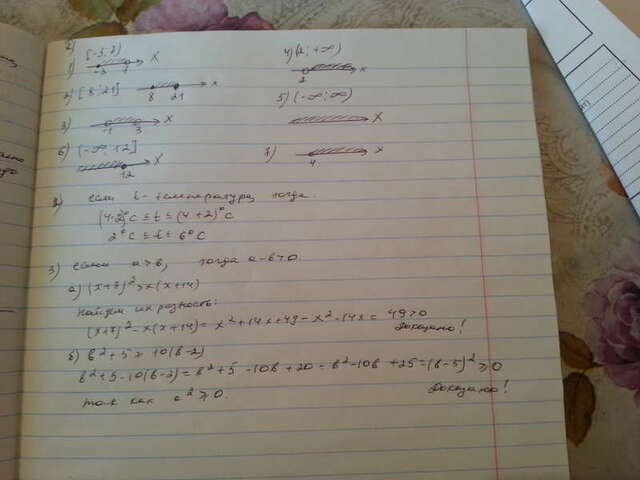 2)
1) [-3;7) -3 7 x
2) [8;21] 8 21 x
3) -1 3 x
4) (2;+∞) 2 x
5) (-∞;∞) x
6) (-∞ 12] 12 x
7) 4 x
2) если t - температура, тогда
(4-2)°C ≤ t ≤ (4+2)°C
2°C ≤ t ≤ 6°C
3) если a>b, тогда a-b>0.
а) (x+7)²>x(x+14)
Найдём их разность:
(x+7)²-x(x+14)= x²+14x+49-x²-14x= 49>0
Доказано!
б) b²+5≥10(b-2)
b²+5-10(b-2)=b²+5-10b+20=b²-10b+25=(b-5)²≥0
так как a²≥0.
Доказано!